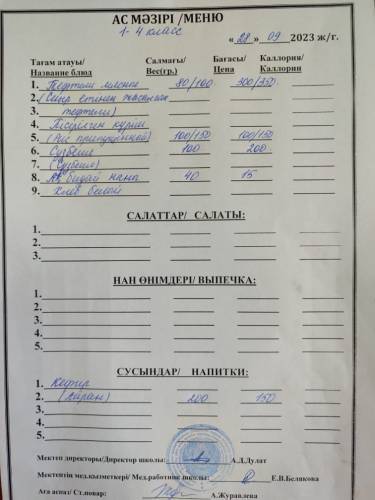 АС МӘЗІРІ /МЕНЮ
1-4 класс
« 28 » 09 2023 ж/г.
Тағам атауы/ Салмағы/ Бағасы/ Каллория/
Название блюд Вес(гр.) Цена Каллории
1. Тефтели мясные 80/100 300/350
2. (Сиыр етінен жасалған
3. тефтели)
4. Пісірілген күріш
5. (Рис припущенной) 100/150 100/150
6. Сузбеше 100 200
7. (Сузбеше)
8. Ақ бидай наны 40 15
9. Хлеб белый
САЛАТТАР/ САЛАТЫ:
1.
2.
3.
НАН ӨНІМДЕРІ/ ВЫПЕЧКА:
1.
2.
3.
4.
5.
СУСЫНДАР/ НАПИТКИ:
1. Кефир
2. (Айран) 200 150
3.
4.
5.
Мектеп директоры/Директор школы: А.Д.Дулат
Мектептің мед.кызметкері/ Мед.работник школы: Е.В.Белякова
Аға аспаз/ Ст.повар: А.Журавлева